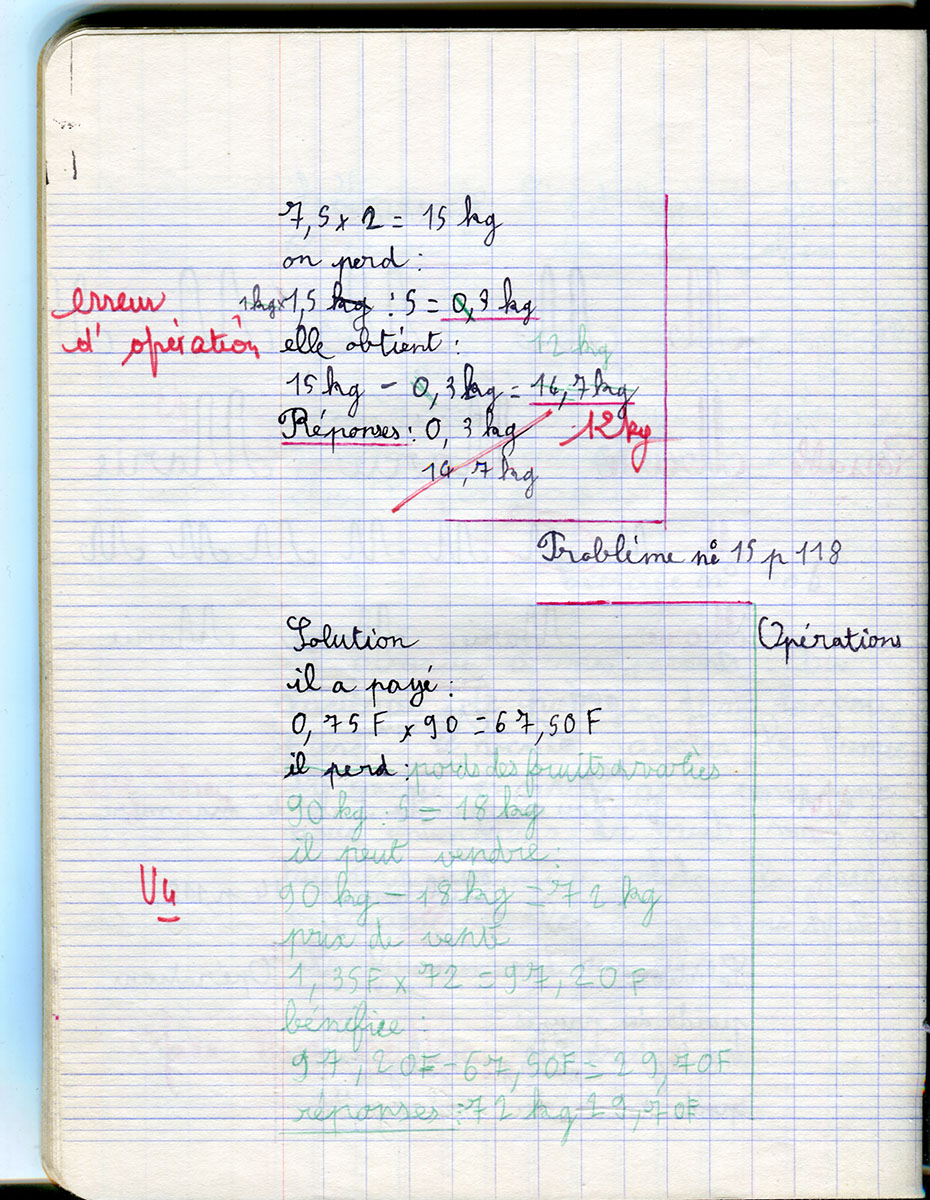 7,5 x 2 = 15 kg
on perd :
erreur
d'opération
1 kg x 1,5 kg : 5 = 0,3 kg
elle obtient :
12 kg
15 kg - 0,3 kg = 14,7 kg
Réponses : 0,3 kg
12 kg
14,7 kg
Problème n° 15 p 118
Solution
Opérations
il a payé :
0,75 F x 90 = 67,50 F
il perd : poids des fruits avariés
90 kg : 5 = 18 kg
il peut vendre :
90 kg - 18 kg = 72 kg
prix de vente
1,35F x 72 = 97,20 F
bénéfice :
97,20F - 67,50F = 29,70F
réponses : 72 kg 29,70F